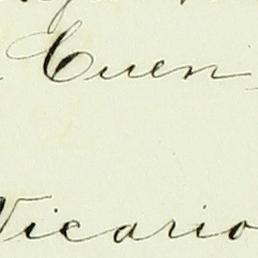 Cuen
Vicario